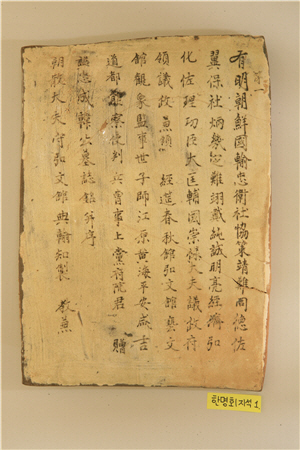 第一
有明朝鮮國輸忠衛社協策靖難同德佐
翼保社炳幾定難翊戴純誠明亮經濟弘
化佐理功臣大匡輔國崇祿大夫議政府
領議政兼領 經筵春秋館弘文館藝文
館觀象監事世子師江原黃海平安咸吉
道都體察使判兵曹事上黨府院君 贈
謚忠成韓公墓誌銘幷序
朝散大夫守弘文館典翰知製 敎兼
한명회지석 1